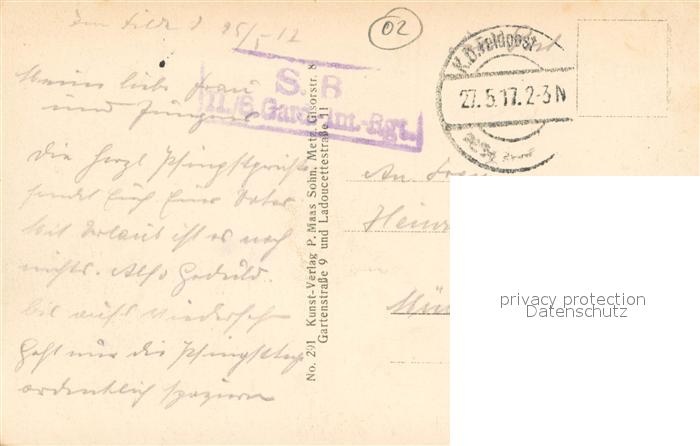 Im Felde d 25/5-17
02
Meine liebe Frau
und Jungens
S. B
11./6. Gard Inf.-Rgt.
K.D. Feldpost
27.5.17.2-3N
Die herzl Pfingstgrüße
sendet Euch Euer Vater
Mit Urlaub ist es noch
nichts. Also Geduld.
bis aufs Wiedersehn
Geht nur die Pfingsttage
ordentlich spazieren
No. 291 Kunst-Verlag P. Maas Sohn, Metz, Gisorstr. 8
Gartenstraße 9 und Ladoucettestraße 11
An Frau
Heinr
Mün
privacy protection
Datenschutz